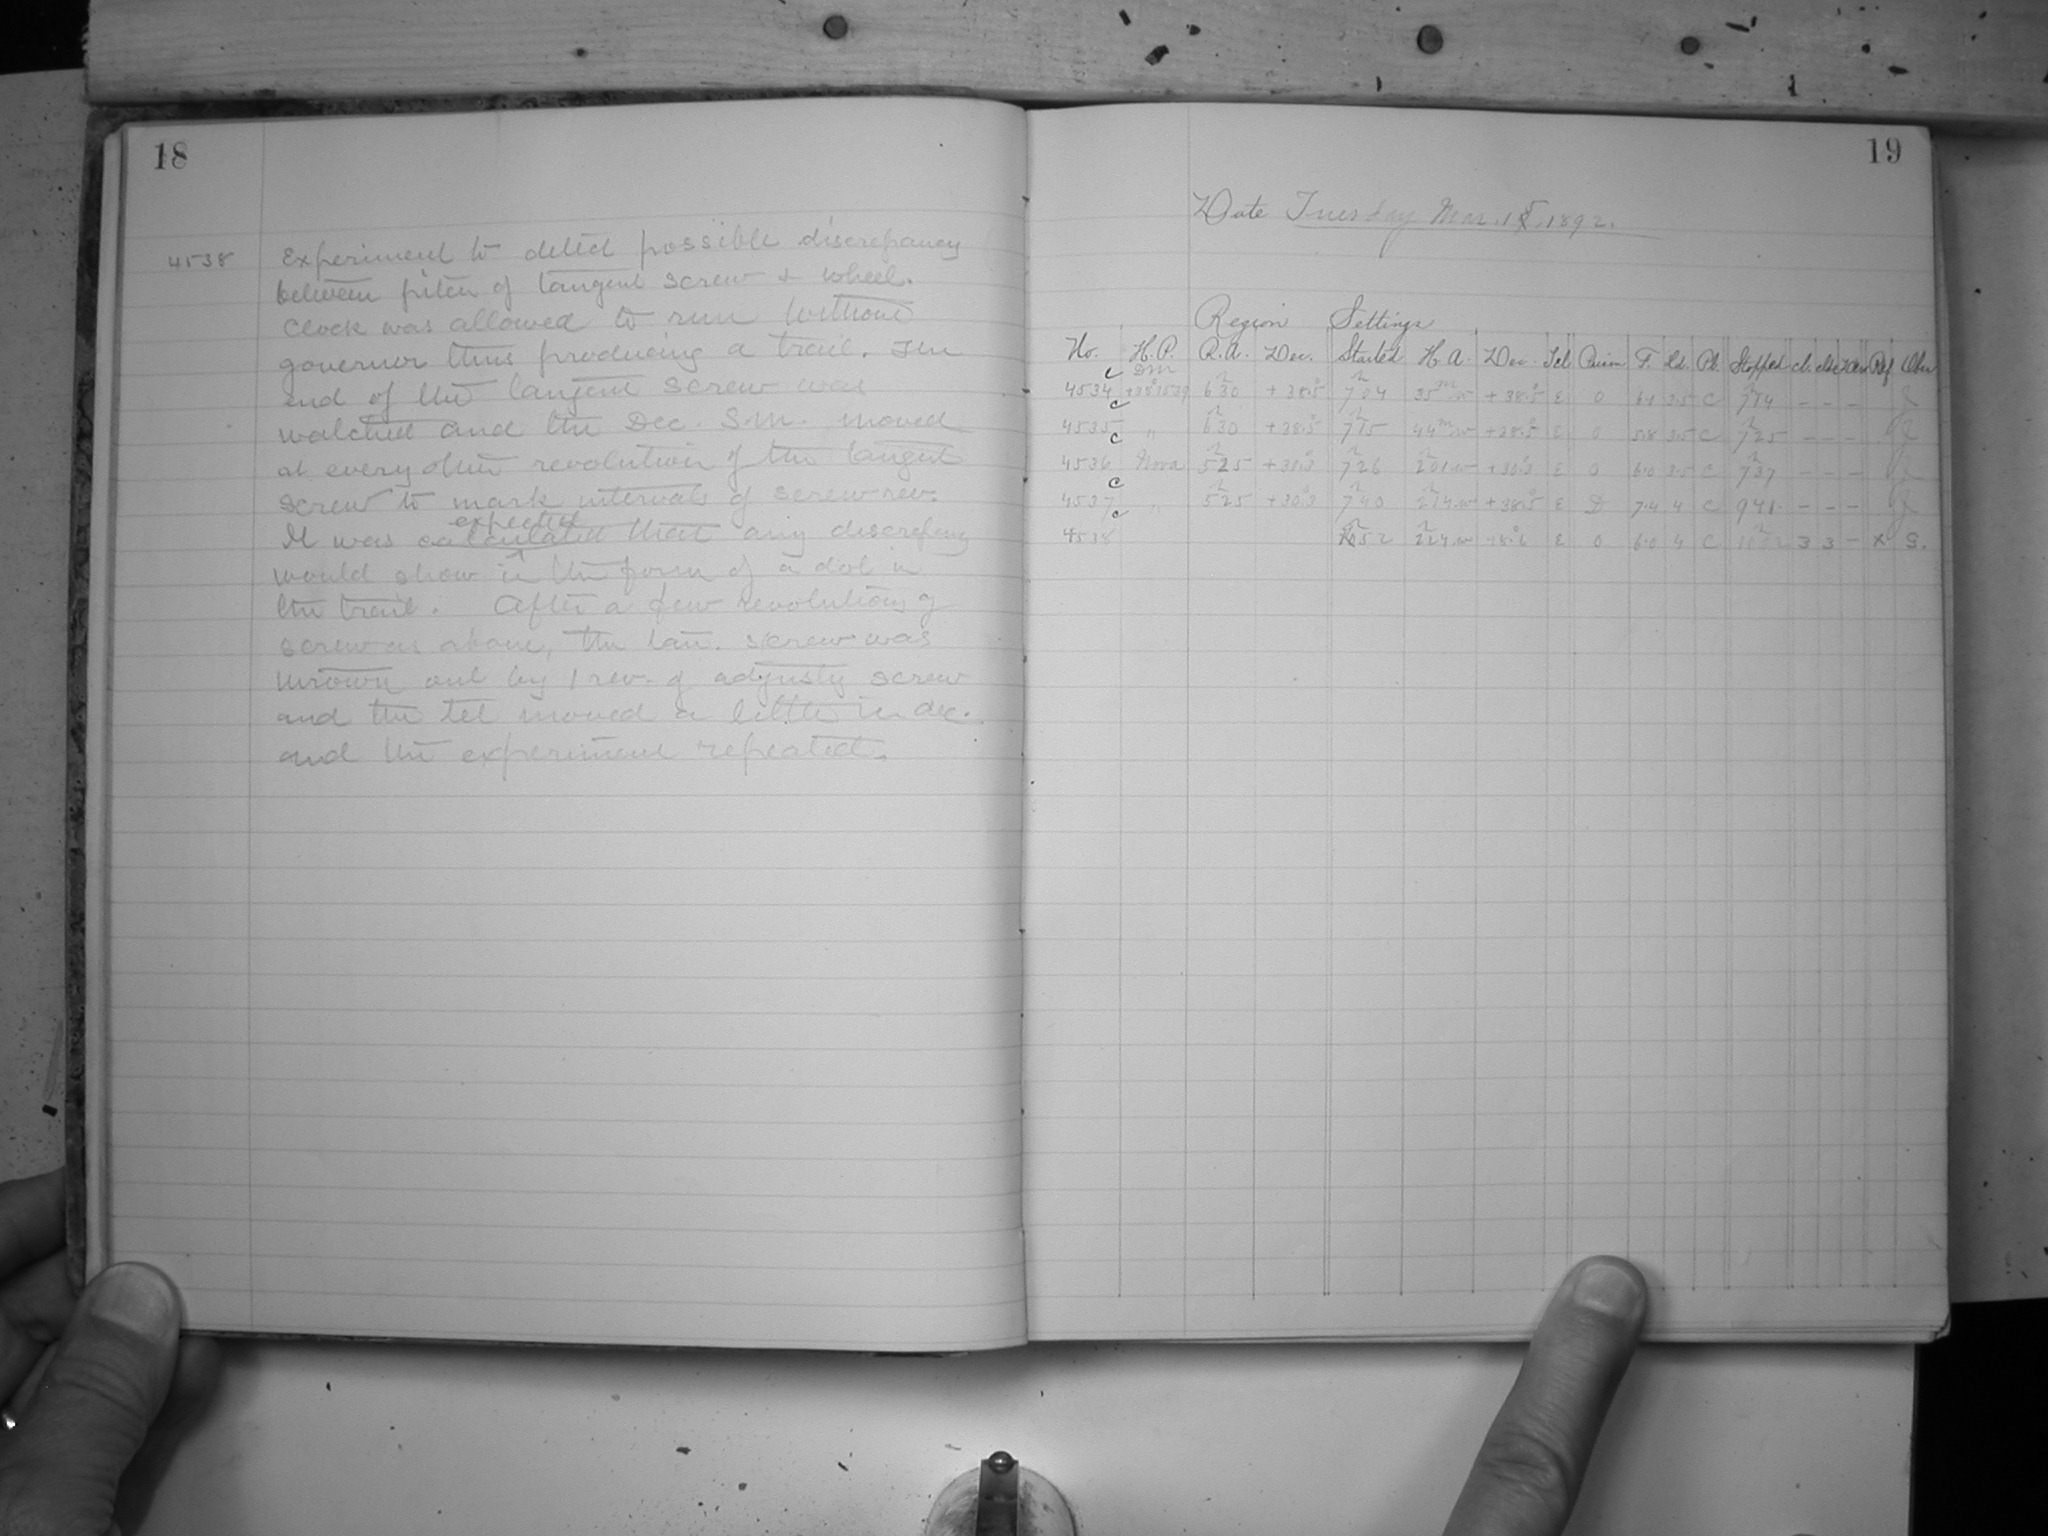 18
4538 Experiment to detect possible discrepancy
between pitch of tangent screw & wheel.
Clock was allowed to run without
governor thus producing a trail. The
end of the tangent screw was
watched and the Dec. S.M. moved
at every other revolution of the tangent
screw to mark intervals of screw rev.
expected
It was calculated that any discrepancy
would show in the form of a dot in
the trail. After a few revolutions of
screw as above, the tan. screw was
thrown out by 1 rev. of adjusting screw
and the tel moved a little in dec.
and the experiment repeated.
19
Date Tuesday Mar. 15, 1892.
Region Settings
No. H.P. R.A. Dec. Started H.A. Dec. Tel. F. Pl. Stopped Ref Obs
DM
4534 c +38°1539 6 30 +38.5 7 04 35m w +38.5 E 0 6.1 3.5 C 7 14 - - -
4535 c " 6 30 +38.5 7 15 44m w +38.5 E 0 5.8 3.5 C 7 25 - - -
4536 c Nova 5 25 +30.3 7 26 2 01 w +30.3 E 0 6.0 3.5 C 7 37 - - -
4537 c " 5 25 +30.3 7 40 2 14 w +38.5 E D 7.4 4 C 9 41 - - -
4538 c 10 52 2 24 w E 0 6.0 4 C 3 3 - x S.